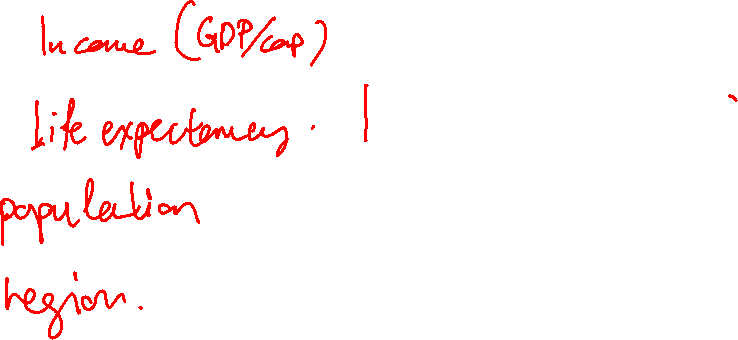 Income (GDP/cap)
Life expectancy. |
population
region.